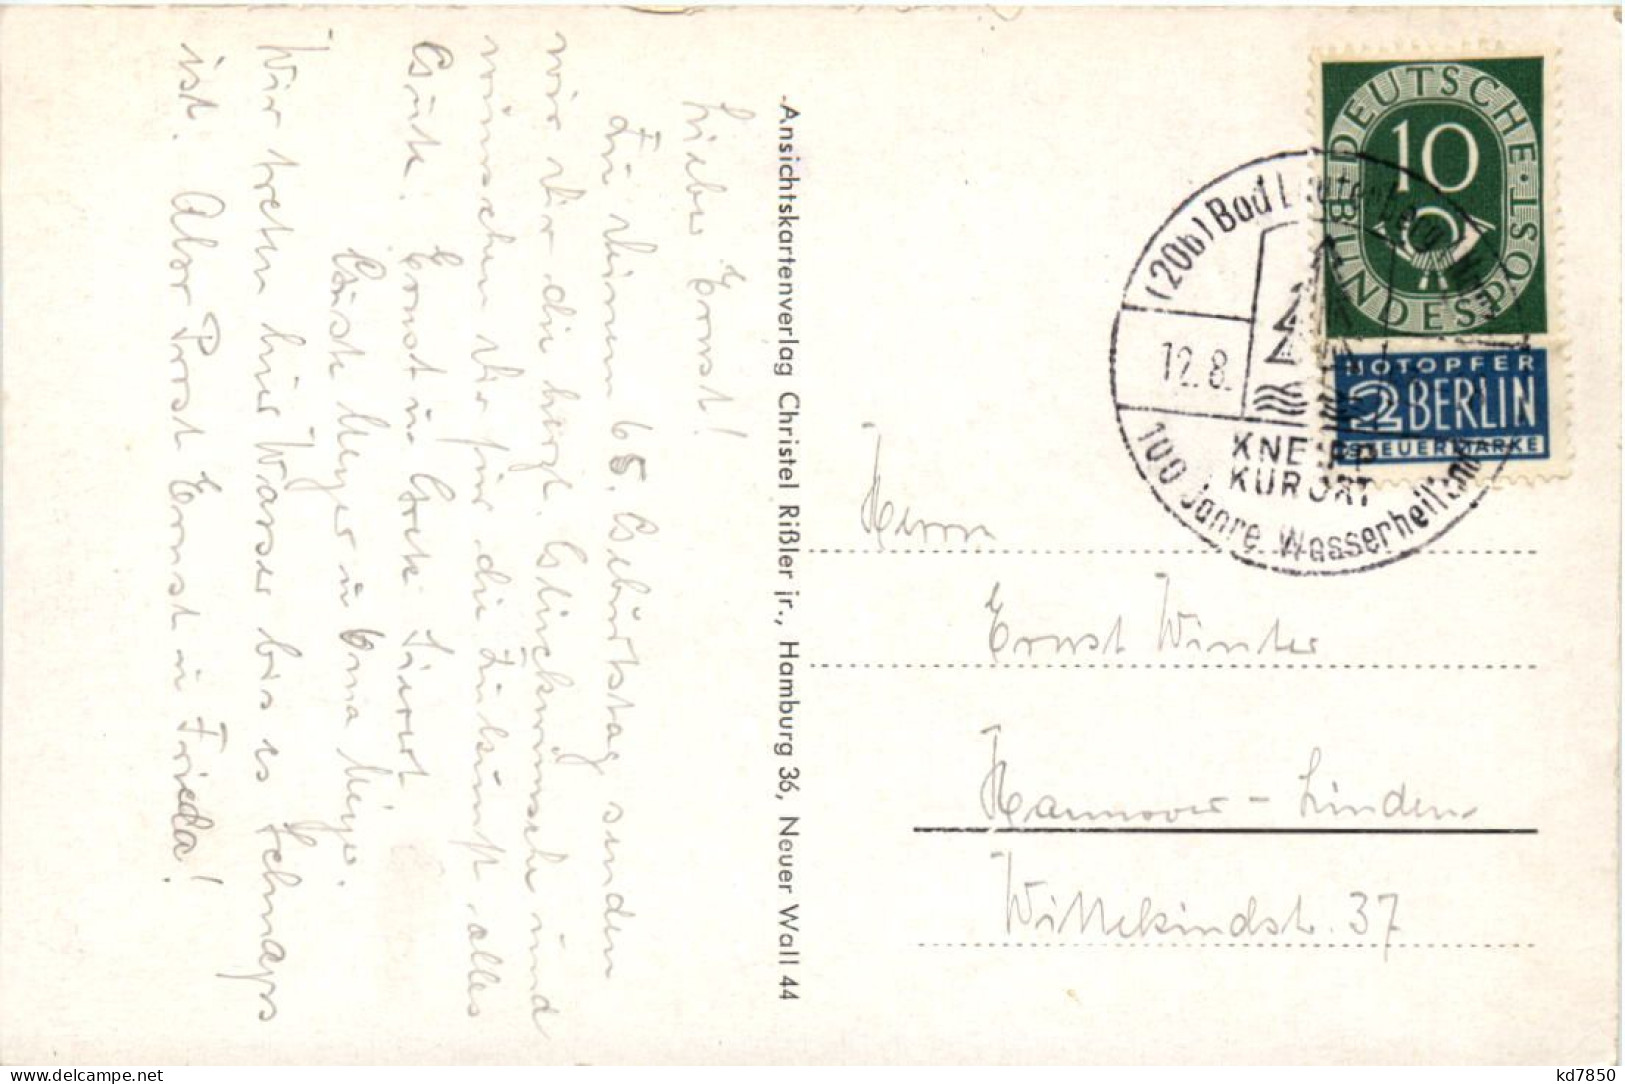 Liebe Ernst!
Zu Deinem 65. Geburtstag senden
wir Dir die herzl. Glückwünsche und
wünschen Dir für die Zukunft alles
Gute. Ernst u. Grete Sievert
Grüsse Meyer u. Erna Meyer.
Wir treten hier Wasser bis es Schnaps
ist. Aber Prost Ernst u. Frieda!
Ansichtskartenverlag Christel Rißler jr., Hamburg 36, Neuer Wall 44
DEUTSCHE BUNDESPOST
10
NOTOPFER
2 BERLIN
STEUERMARKE
(20b) Bad Lauterberg
12.8.
KNEIPP
KURORT
100 Jahre Wasserheilkunde
Herrn
Ernst Winter
Hannover - Linden
Wittekindstr. 37
kd7850